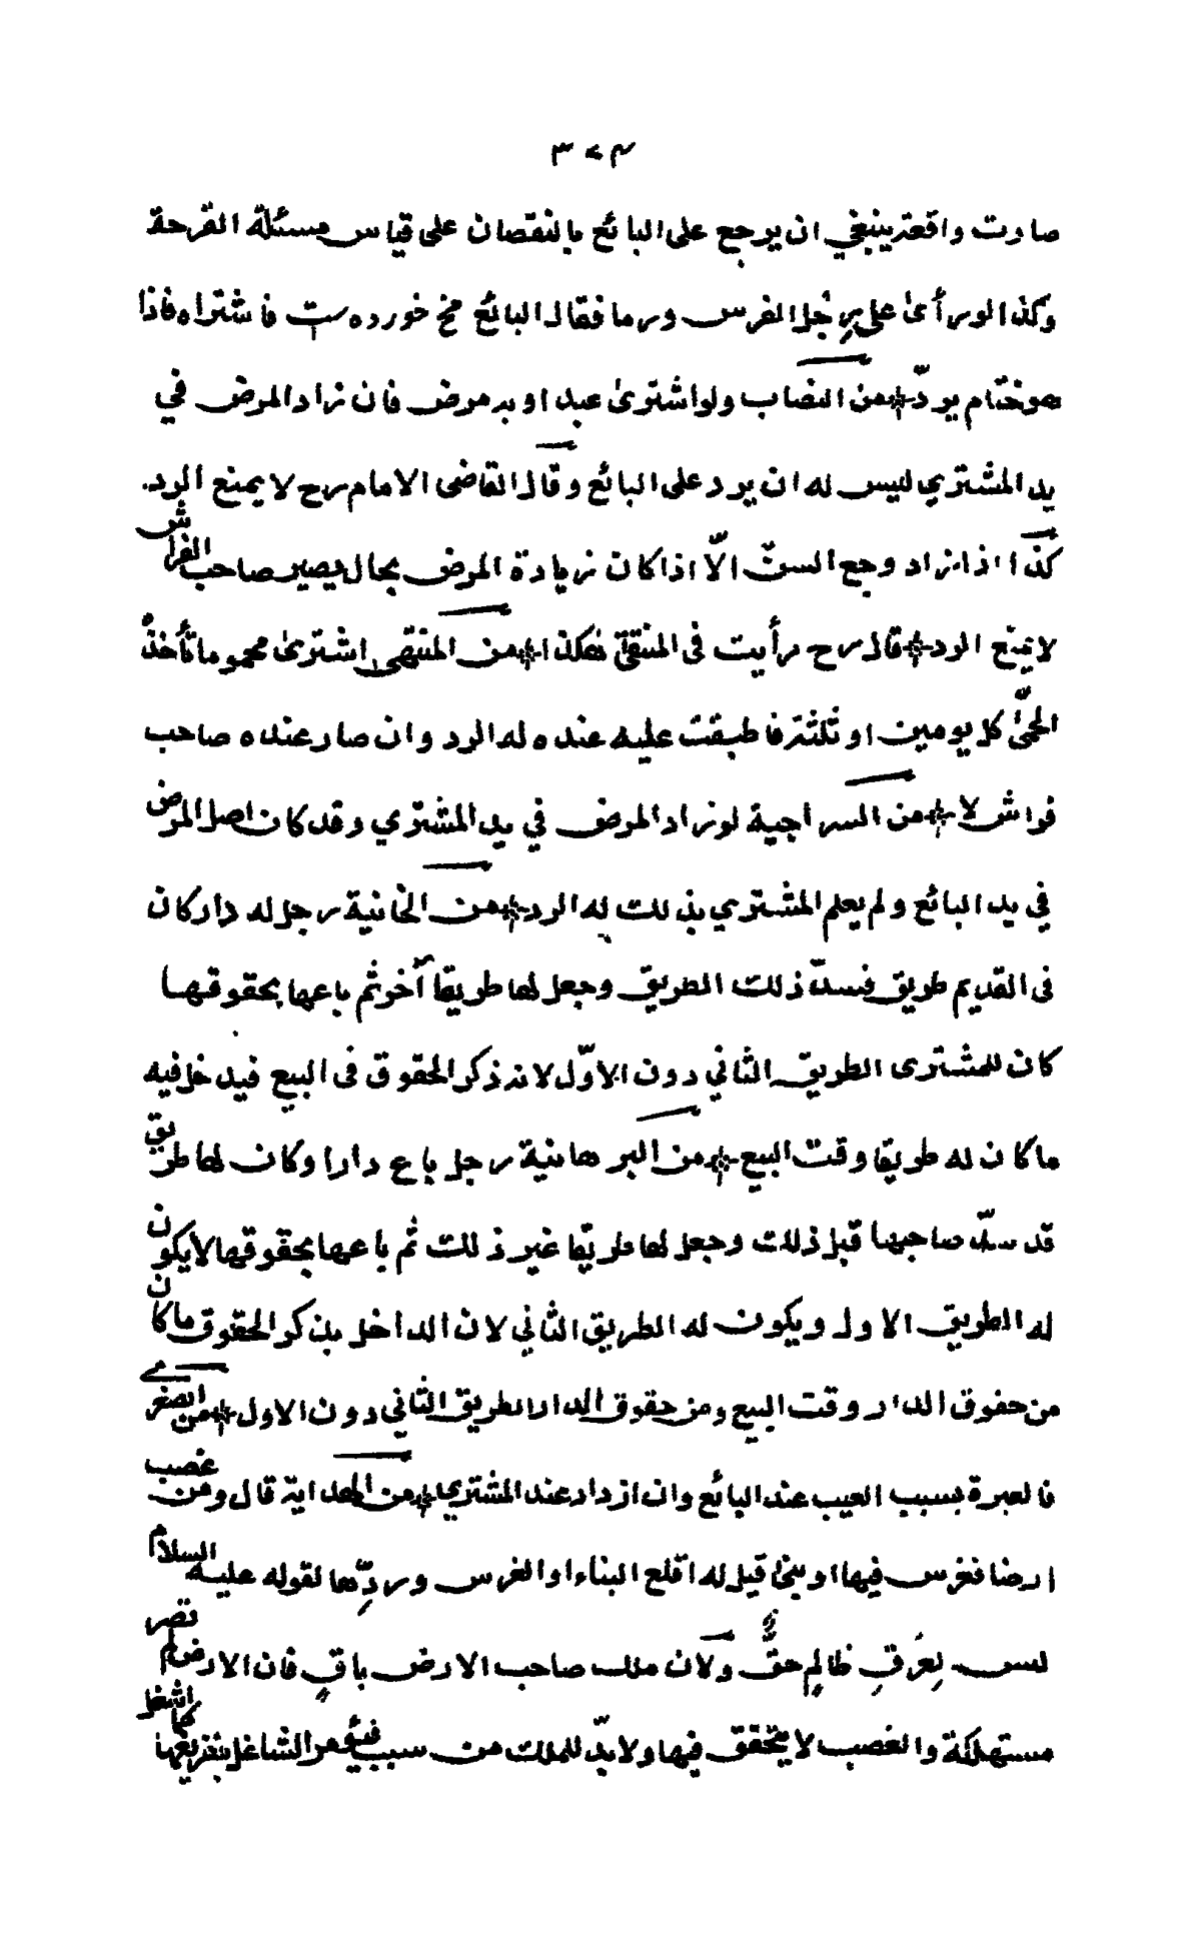 ٣٧٤
صارت واقعة ينبغي ان يرجع على البائع بالنقصان على قياس مسئلة القرحة
وكذا لو رأى على رِجُل الفرس ورما فقال البائع ميخ خورده ست فاشتراه فاذا
هو ختام يردّ ❊ من النصاب ولو اشترى عبدا وبه مرض فان زاد المرض في
يد المشتري ليس له ان يرد على البائع وقال القاضى الامام رح لا يمنع الرد
كذا اذا زاد وجع السنّ الّا اذا كان زيادة المرض بحال يصير صاحب الفراش
لا يمنع الرد ❊ قال رح رأيت فى المنتقى هكذا ❊ من المنتهى اشترى محموما تأخذُ
الحمّى كل يومين او ثلثة فاطبقت عليه عنده له الرد وان صار عنده صاحب
فراش لا ❊ من السراجية لو زاد المرض في يد المشتري وقد كان اصل المرض
في يد البائع ولم يعلم المشتري بذلك له الرد ❊ من الخانية رجل له دار كان
فى القديم طريق فسدّ ذلك الطريق وجعل لها طريقا آخر ثم باعها بحقوقها
كان للمشترى الطريق الثاني دون الاوّل لانه ذكر الحقوق فى البيع فيدخل فيه
ما كان له طريقا وقت البيع ❊ من البرهانية رجل باع دارا وكان لها طريق
قد سدّ صاحبها قبل ذلك وجعل لها طريقا غير ذلك ثم باعها بحقوقها لا يكون
له الطريق الاول ويكون له الطريق الثاني لان الداخل بذكر الحقوق ما كان
من حقوق الدار وقت البيع ومن حقوق الدار الطريق الثاني دون الاول ❊ من الصغرى
فالعبرة بسبب العيب عند البائع وان ازداد عند المشتري ❊ من الهداية قال ومن غصب
ارضا فغرس فيها او بنى قيل له اقلع البناء او الغرس وردِّها لقوله عليه السلام
ليس لِعَرقِ ظالمٍ حقٌّ ولان ملك صاحب الارض باقٍ فان الارض لم تصر
مستهلكة والغصب لا يتحقق فيها ولا بدّ للملك من سبب فيؤمر الشاغل بتفريغها كما اشغل